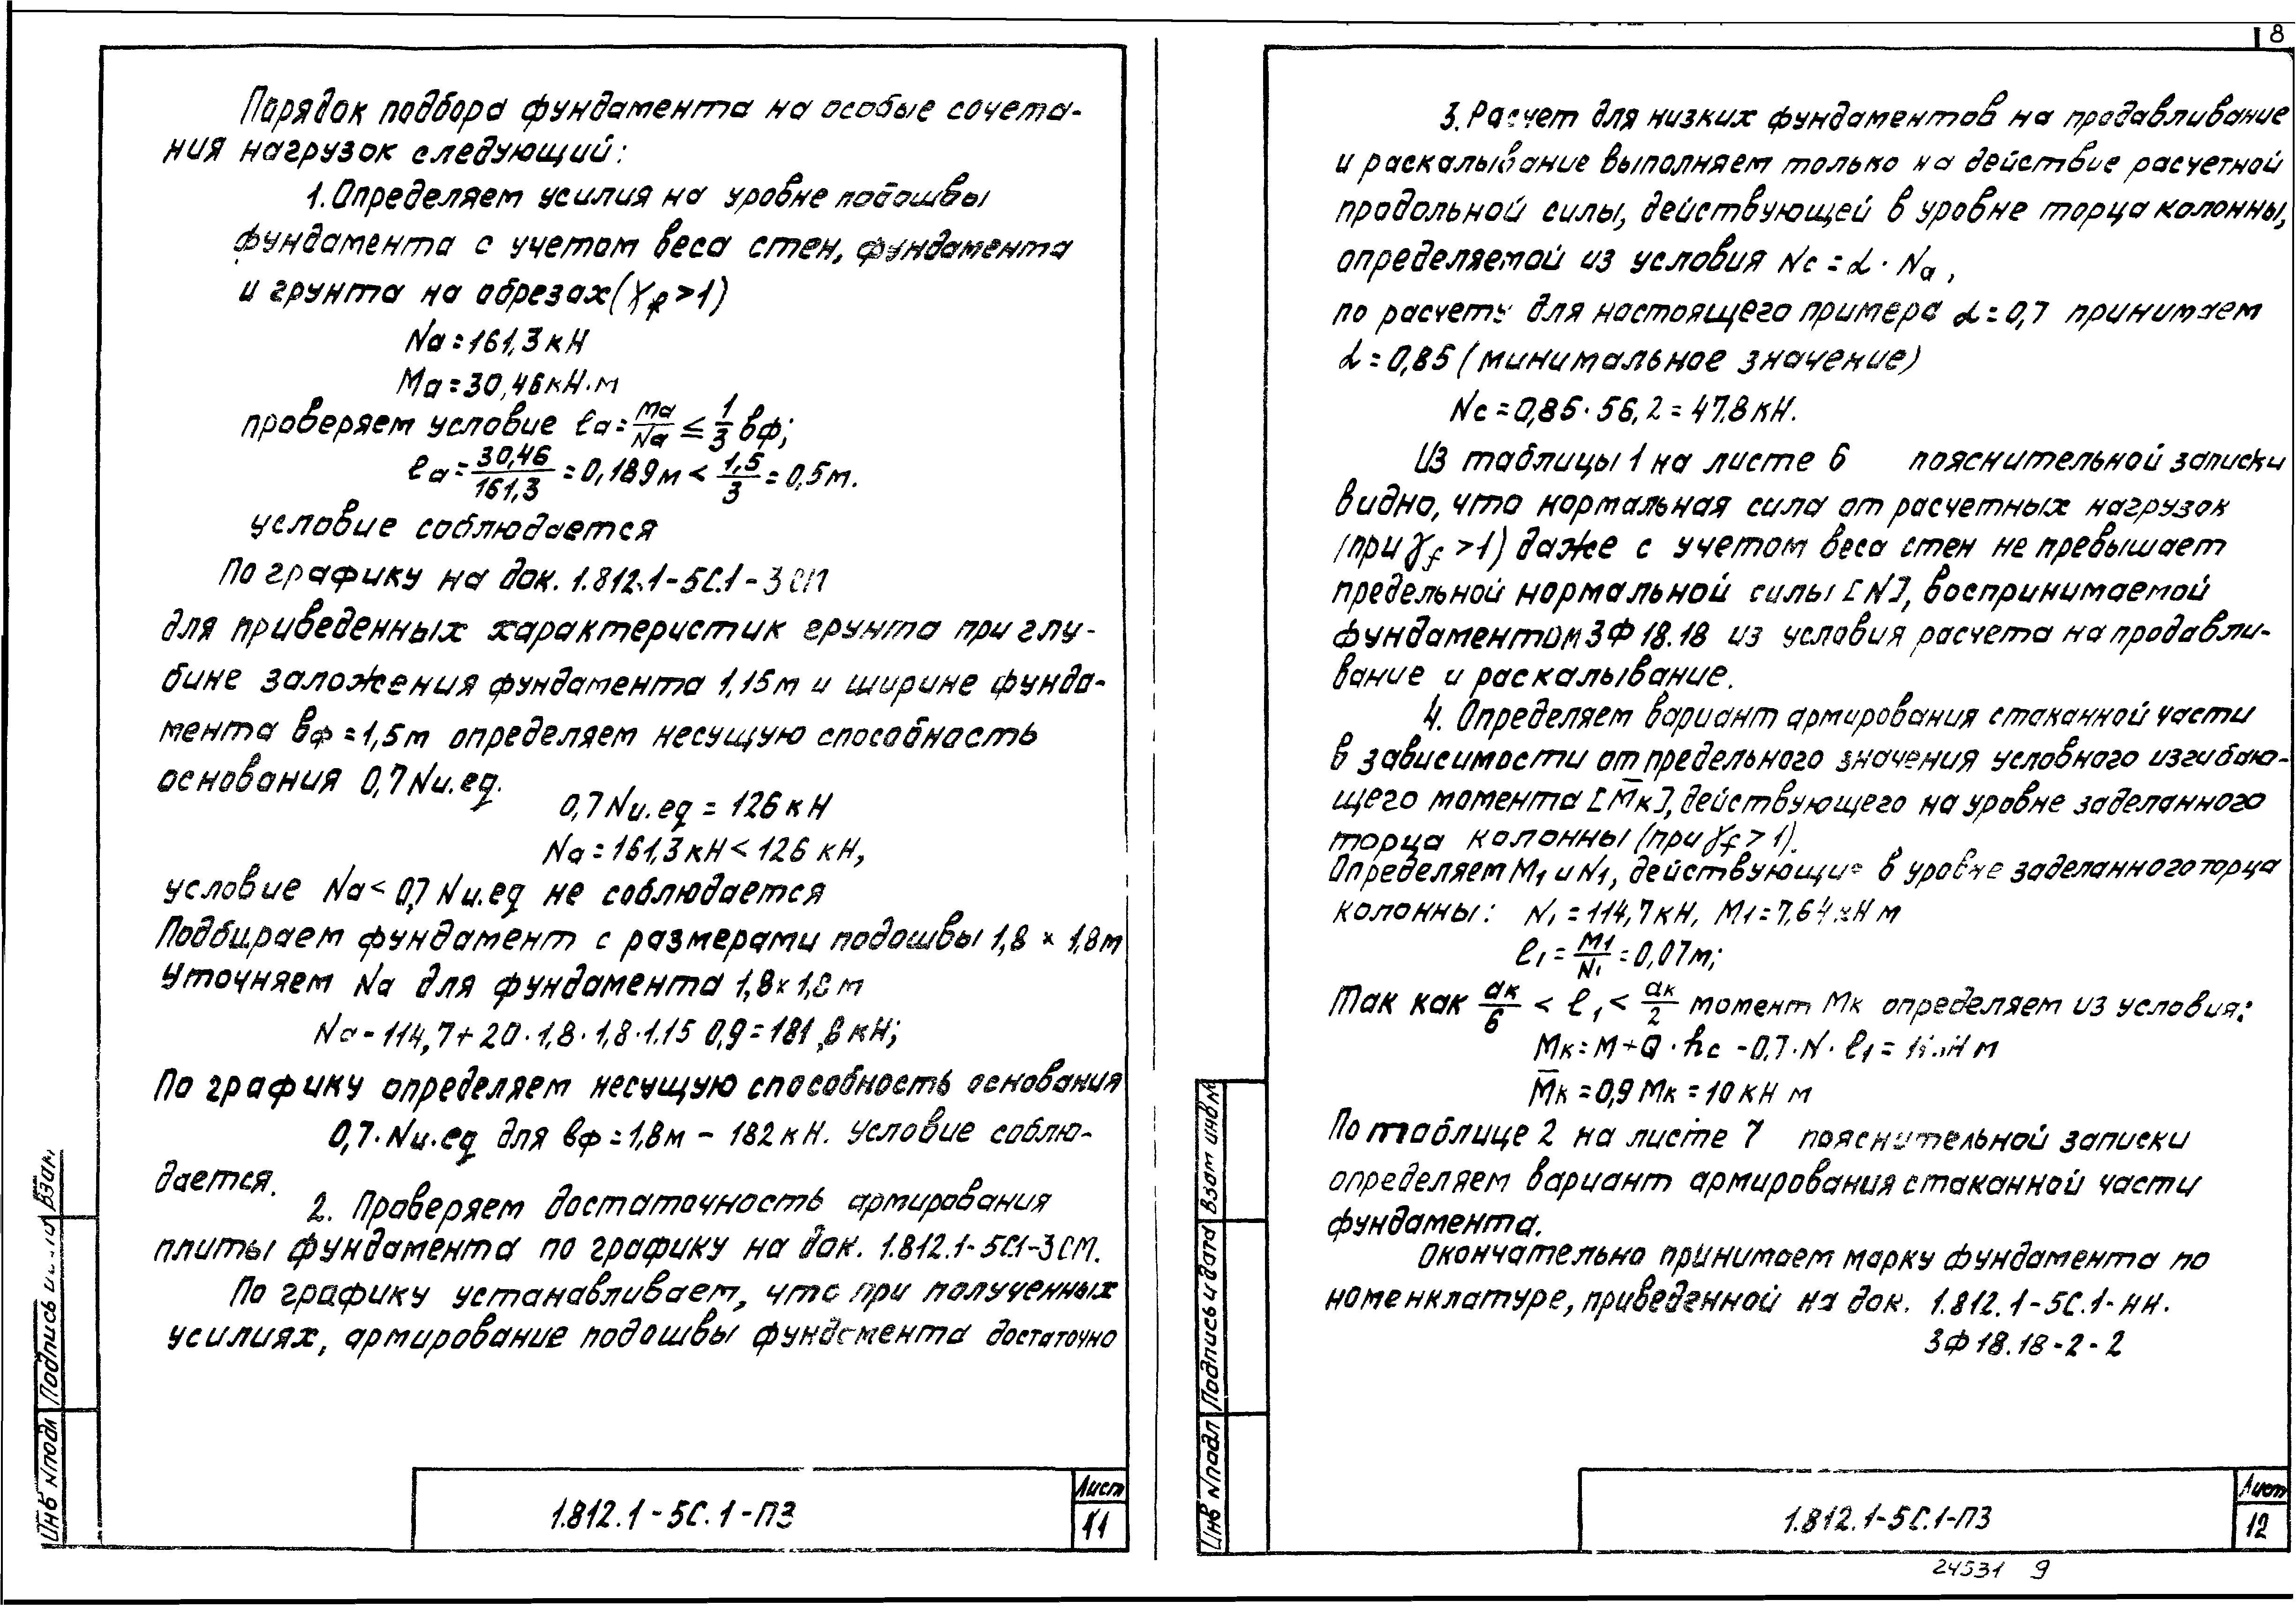 8
Порядок подбора фундамента на особые сочета-
ния нагрузок следующий:
1. Определяем усилия на уровне подошвы
фундамента с учетом веса стен, фундамента
и грунта на обрезах (γf > 1)
Na = 161,3 кН
Ma = 30,46 кН·м
проверяем условие ea = Ma/Na ≤ 1/3 bф;
ea = 30,46/161,3 = 0,189 м < 1,5/3 = 0,5 м.
условие соблюдается
По графику на док. 1.812.1-5С.1-3СМ
для приведенных характеристик грунта при глу-
бине заложения фундамента 1,15 м и ширине фунда-
мента bф = 1,5 м определяем несущую способность
основания 0,7 Nu.eq.
0,7 Nu.eq = 126 кН
Na = 161,3 кН < 126 кН,
условие Na < 0,7 Nu.eq не соблюдается
Подбираем фундамент с размерами подошвы 1,8 × 1,8 м
Уточняем Na для фундамента 1,8 × 1,8 м
Na - 114,7 + 20 · 1,8 · 1,8 · 1.15 0,9 = 181,8 кН;
По графику определяем несущую способность основания
0,7·Nu.eq для bф = 1,8 м - 182 кН. Условие соблю-
дается.
2. Проверяем достаточность армирования
плиты фундамента по графику на док. 1.812.1-5С.1-3СМ.
По графику устанавливает, что при полученных
усилиях, армирование подошвы фундамента достаточно
Инв Nподл Подпись и Взам
1.812.1-5С.1-ПЗ
Лист
11
3. Расчет для низких фундаментов на продавливание
и раскалывание выполняем только на действие расчетной
продольной силы, действующей в уровне торца колонны,
определяемой из условия Nc = α · Na,
по расчету для настоящего примера α = 0,7 принимаем
α = 0,85 (минимальное значение)
Nc = 0,85 · 56,2 = 47,8 кН.
Из таблицы 1 на листе 6 пояснительной записки
видно, что нормальная сила от расчетных нагрузок
(при γf > 1) даже с учетом веса стен не превышает
предельной нормальной силы [N], воспринимаемой
фундаментом 3Ф 18.18 из условия расчета на продавли-
вание и раскалывание.
4. Определяем вариант армирования стаканной части
в зависимости от предельного значения условного изгибаю-
щего момента [M̄к], действующего на уровне заделанного
торца колонны (при γf > 1).
Определяем M1 и N1, действующие в уровне заделанного торца
колонны: N1 = 114,7 кН, M1 = 7,64 кН м
e1 = M1/N1 = 0,07 м;
Так как aк/6 < e1 < aк/2 момент Mк определяем из условия:
Mк = M + Q · hc - 0,7 · N · e1 = кН м
M̄к = 0,9 Mк = 10 кН м
По таблице 2 на листе 7 пояснительной записки
определяем вариант армирования стаканной части
фундамента.
Окончательно принимаем марку фундамента по
номенклатуре, приведенной на док. 1.812.1-5С.1-НН.
3Ф 18.18-2-2
Инв Nподл Подпись и дата Взам инв N
1.812.1-5С.1-ПЗ
Лист
12
24531 9